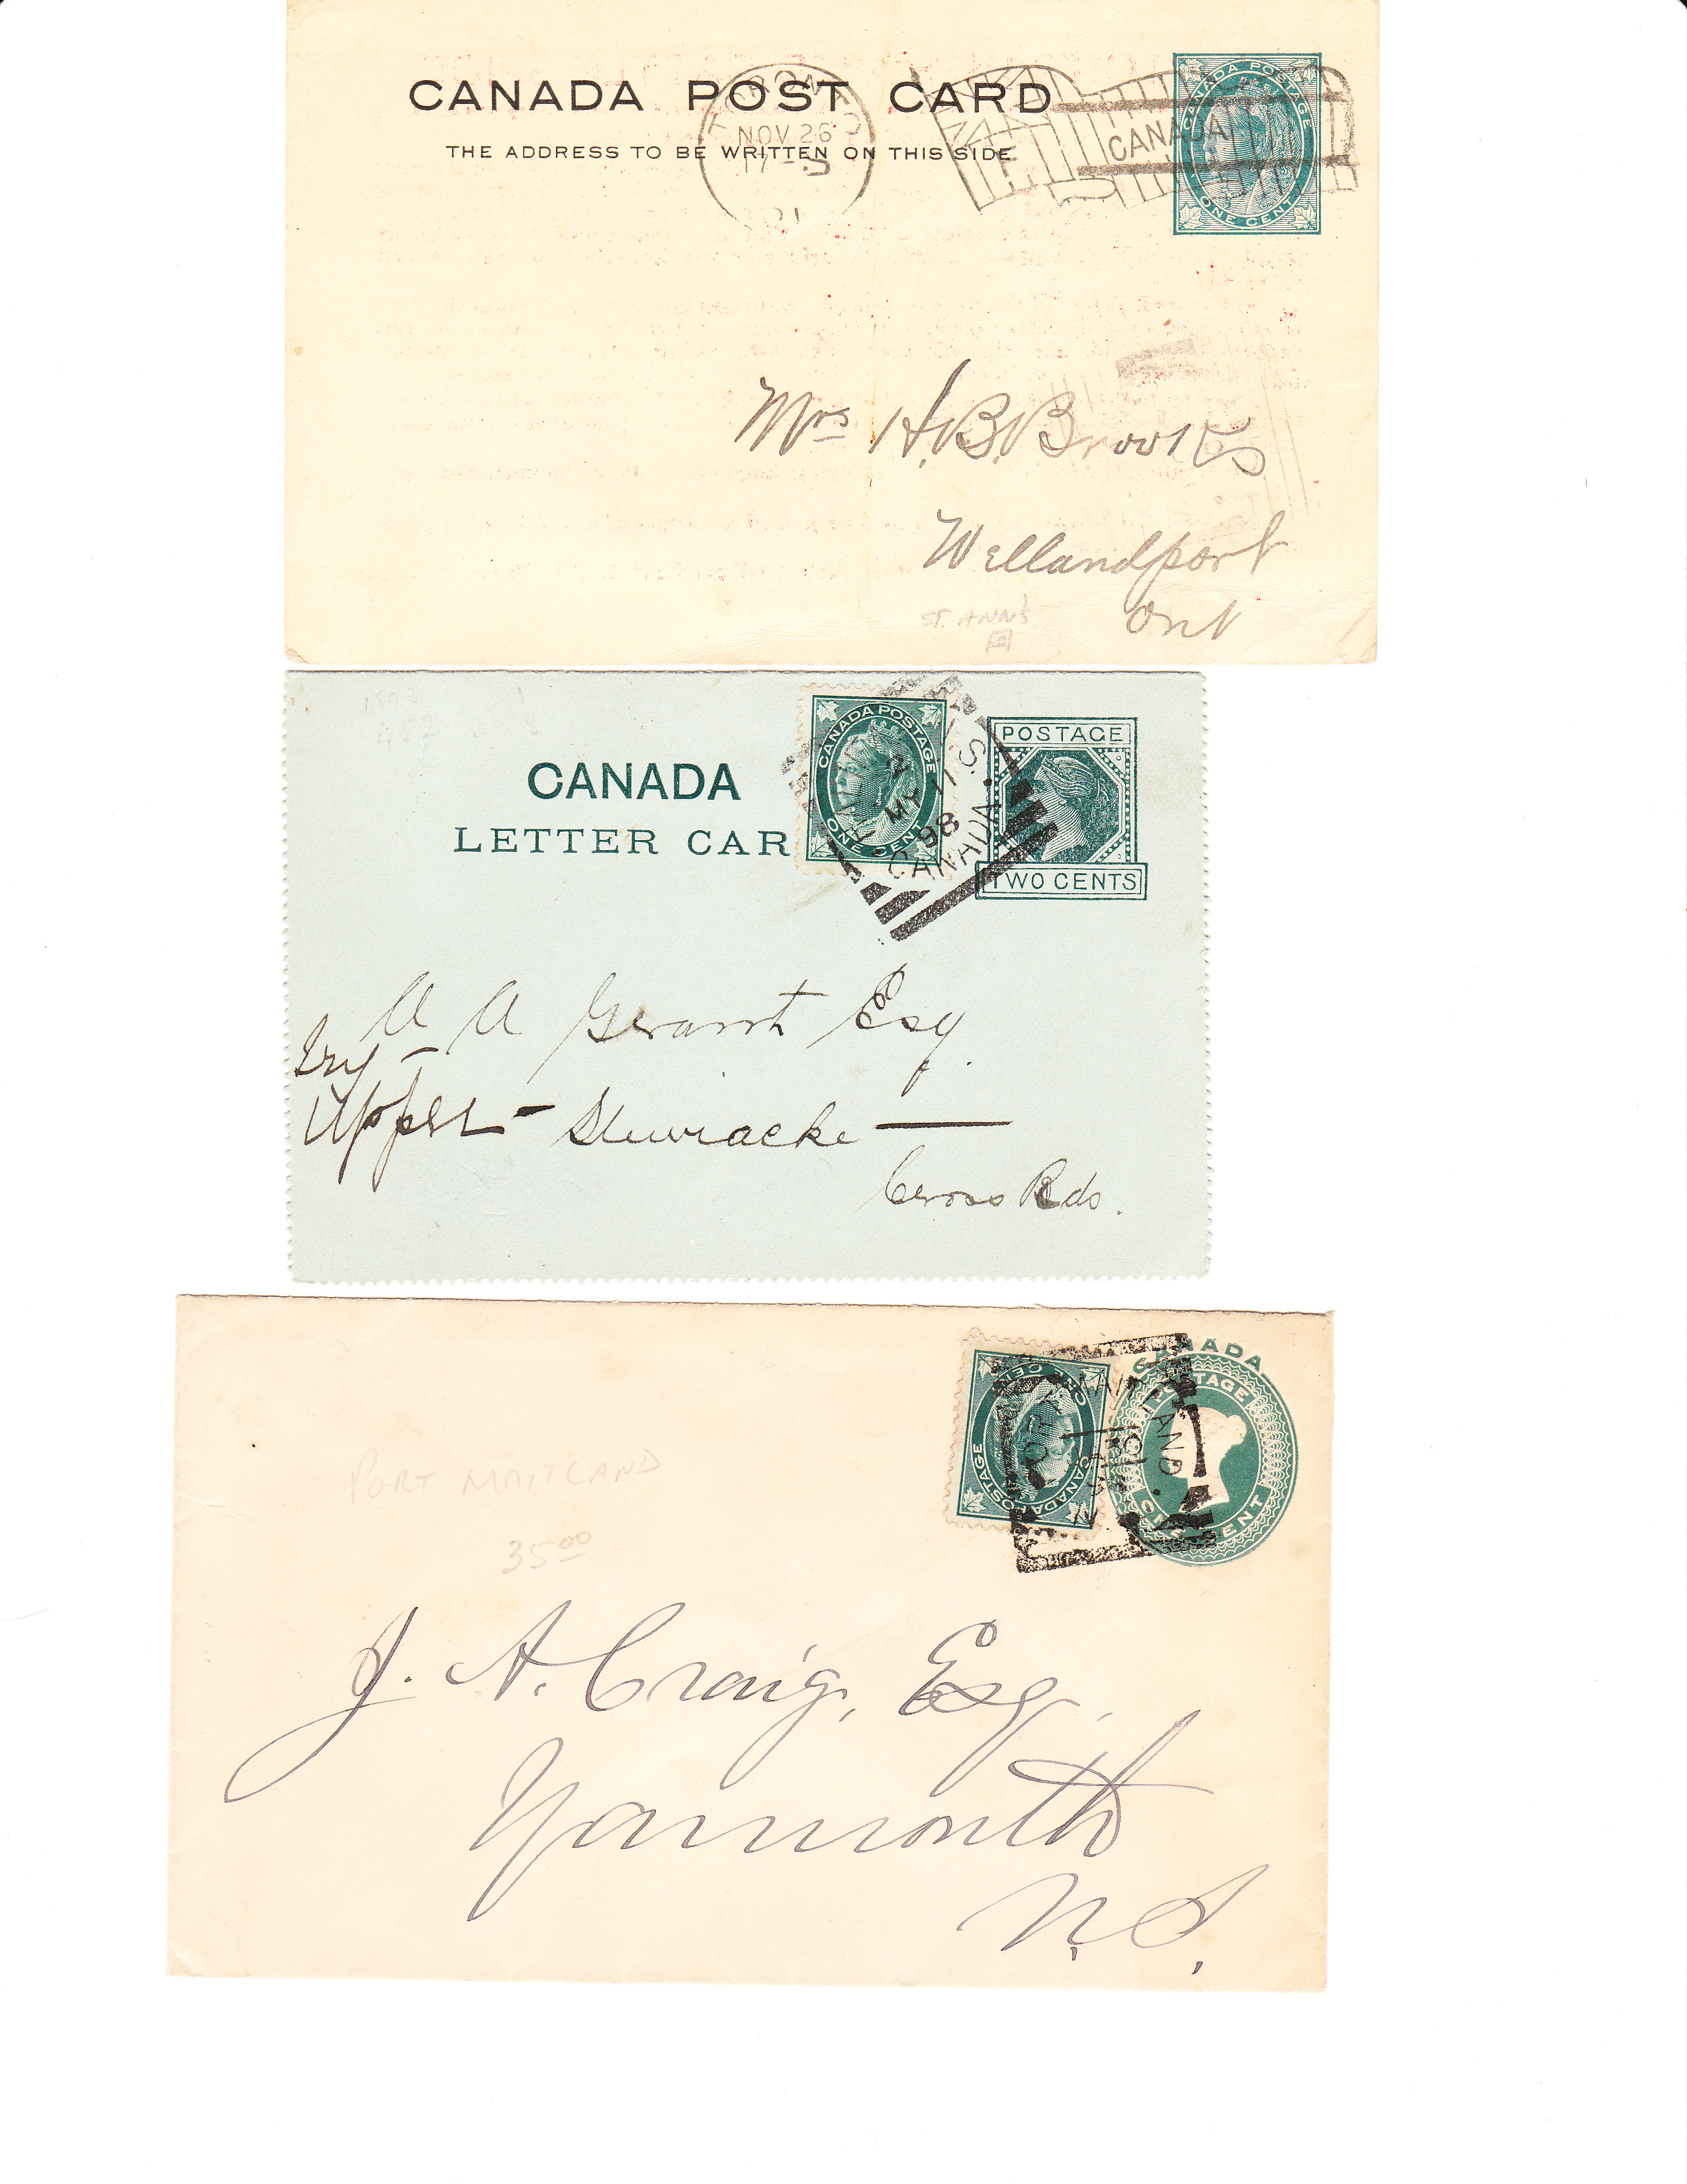 CANADA POST CARD
THE ADDRESS TO BE WRITTEN ON THIS SIDE
TORONTO
NOV 26
17 - 5
01
CANADA
CANADA POSTAGE
ONE CENT
Mrs H.B. Brooks
Wellandport
Ont
ST. ANN'S
CANADA
LETTER CAR
CANADA POSTAGE
ONE CENT
N.S.
MY 11
98
CANADA
POSTAGE
TWO CENTS
A A Grant Esq.
Try -
Upper - Stewiacke —
Cross Rds.
CANADA
POSTAGE
ONE CENT
CANADA POSTAGE
ONE CENT
MAITLAND
PORT MAITLAND
35 00
J. A. Craig, Esq.,
Yarmouth
N.S.